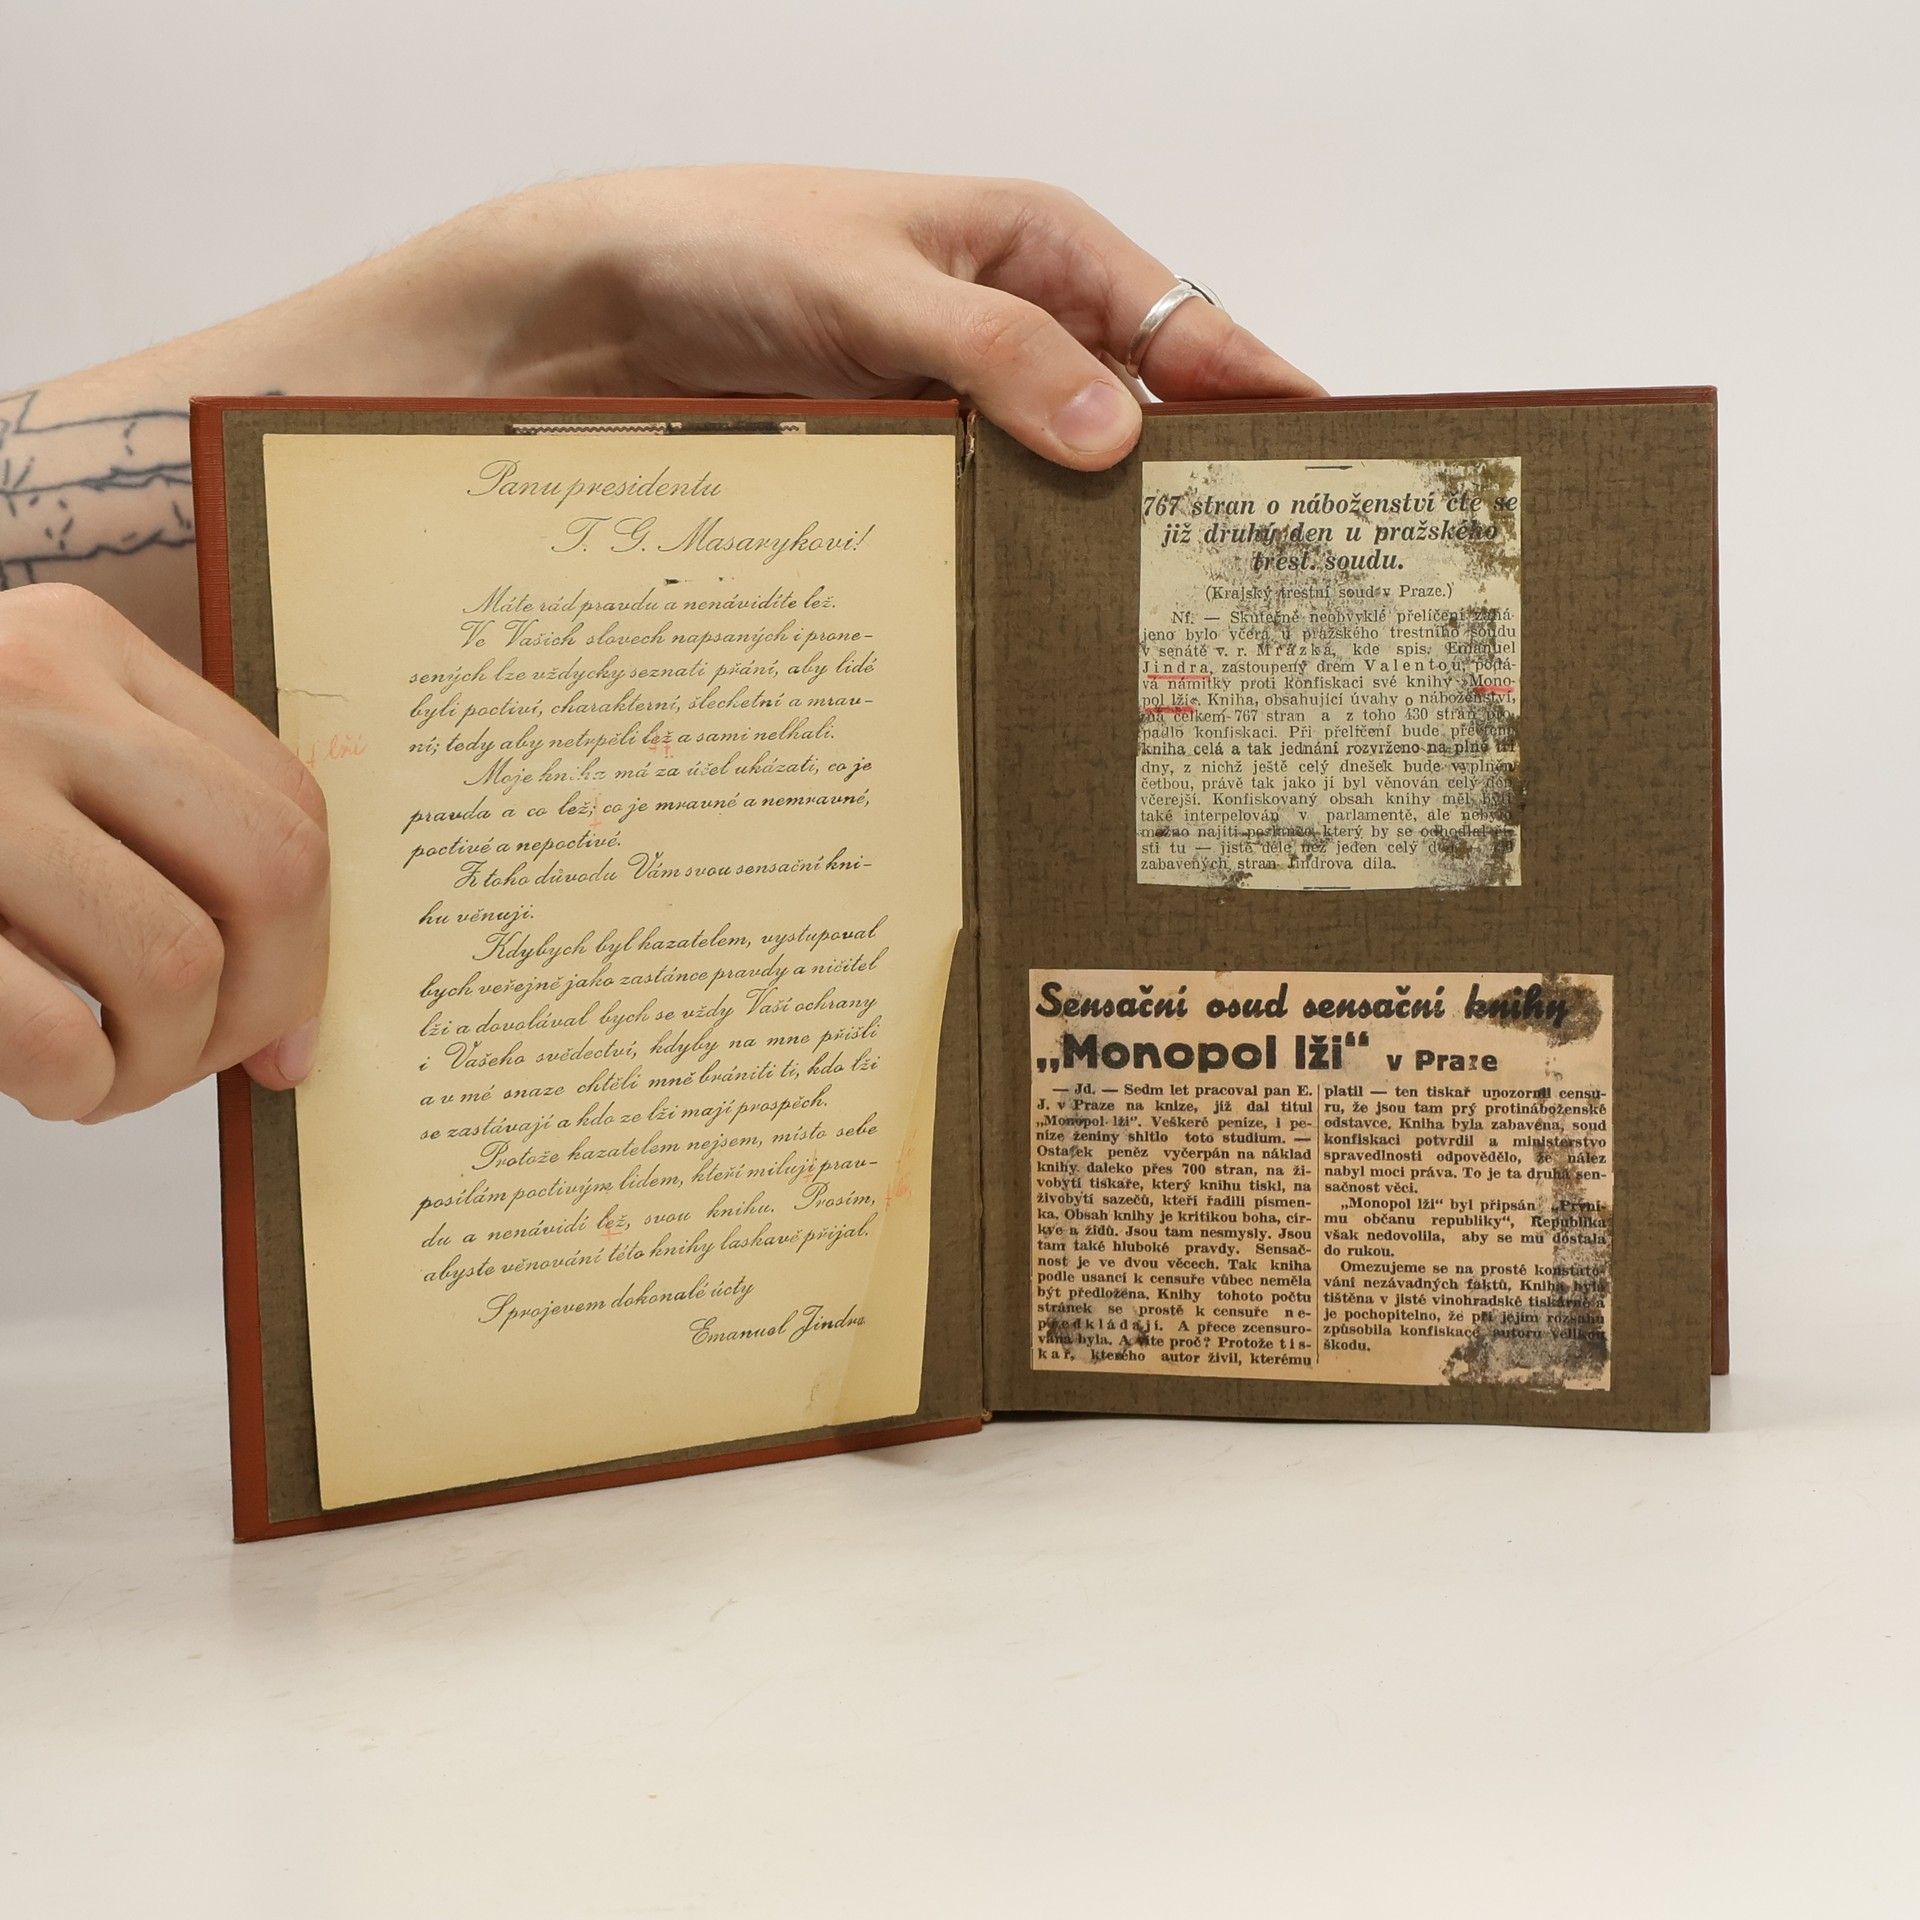 Panu presidentu
T. G. Masarykovi!
Máte rád pravdu a nenávidíte lež.
Ve Vašich slovech napsaných i prone-
sených lze vždycky seznati přání, aby lidé
byli poctiví, charakterní, šlechetní a mrav-
ní; tedy aby netrpěli lež a sami nelhali.
lži
Moje kniha má za účel ukázati, co je
pravda a co lež; co je mravné a nemravné,
poctivé a nepoctivé.
Z toho důvodu Vám svou sensační kni-
hu věnuji.
Kdybych byl kazatelem, vystupoval
bych veřejně jako zastánce pravdy a ničitel
lži a dovolával bych se vždy Vaší ochrany
i Vašeho svědectví, kdyby na mne přišli
a v mé snaze chtěli mně brániti ti, kdo lži
se zastávají a kdo ze lži mají prospěch.
Protože kazatelem nejsem, místo sebe
posílám poctivým lidem, kteří milují prav-
du a nenávidí lež, svou knihu. Prosím,
abyste věnování této knihy laskavě přijal.
S projevem dokonalé úcty
Emanuel Jindra
767 stran o náboženství čte se
již druhý den u pražského
trest. soudu.
(Krajský trestní soud v Praze.)
Nf. — Skutečně neobvyklé přelíčení zahá-
jeno bylo včera u pražského trestního soudu
v senátě v. r. Mrázka, kde spis. Emanuel
Jindra, zastoupený drem Valentou, podá-
vá námitky proti konfiskaci své knihy »Mono-
pol lži«. Kniha, obsahující úvahy o náboženství,
má celkem 767 stran a z toho 430 stran pro-
padlo konfiskaci. Při přelíčení bude přečtena
kniha celá a tak jednání rozvrženo na plné tři
dny, z nichž ještě celý dnešek bude vyplněn
četbou, právě tak jako jí byl věnován celý den
včerejší. Konfiskovaný obsah knihy měl býti
také interpelován v parlamentě, ale nebylo
možno najíti poslance, který by se odhodlal
sti tu — jistě déle než jeden celý
zabavených stran Jindrova díla.
Sensační osud sensační knihy
„Monopol lži“ v Praze
— Jd. — Sedm let pracoval pan E.
J. v Praze na knize, jíž dal titul
„Monopol lži“. Veškeré peníze, i pe-
níze ženiny shltlo toto studium. —
Ostatek peněz vyčerpán na náklad
knihy daleko přes 700 stran, na ži-
vobytí tiskaře, který knihu tiskl, na
živobytí sazečů, kteří řadili písmen-
ka. Obsah knihy je kritikou boha, cír-
kve a židů. Jsou tam nesmysly. Jsou
tam také hluboké pravdy. Sensač-
nost je ve dvou věcech. Tak kniha
podle usancí k censuře vůbec neměla
být předložena. Knihy tohoto počtu
stránek se prostě k censuře ne-
předkládají. A přece zcensuro-
vána byla. A víte proč? Protože tis-
kař, kterého autor živil, kterému
platil — ten tiskař upozornil censu-
ru, že jsou tam prý protináboženské
odstavce. Kniha byla zabavena, soud
konfiskaci potvrdil a ministerstvo
spravedlnosti odpovědělo, že nález
nabyl moci práva. To je ta druhá sen-
sačnost věci.
„Monopol lži“ byl připsán „První-
mu občanu republiky“, Republika
však nedovolila, aby se mu dostala
do rukou.
Omezujeme se na prosté konstato-
vání nezávadných faktů, Kniha byla
tištěna v jisté vinohradské tiskárně a
je pochopitelno, že při jejím rozsahu
způsobila konfiskace autoru velikou
škodu.